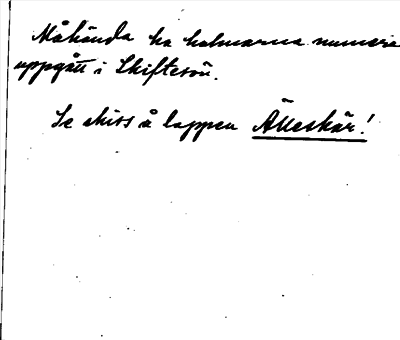 Måhända ha holmarna numera
uppgått i Skiftesön.
Se skiss å lappen Älleskär!